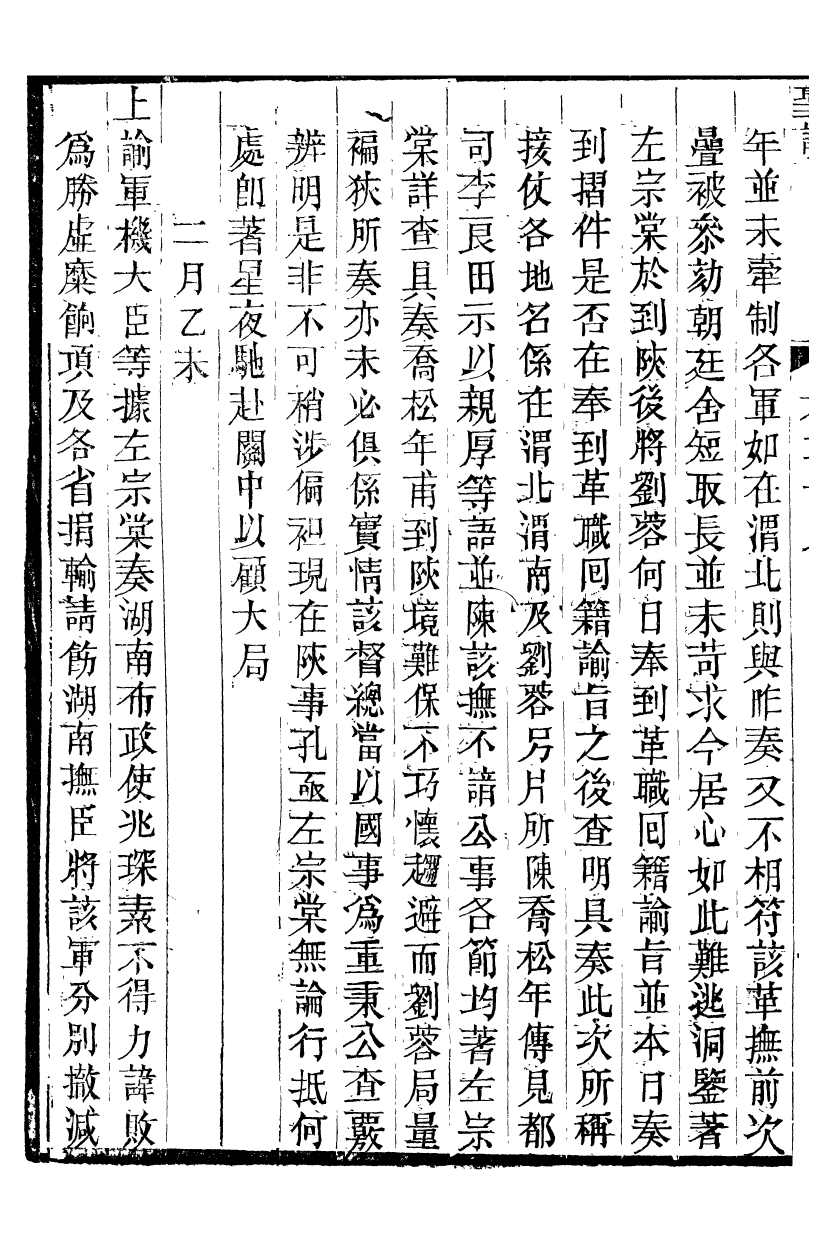 年並未牽制各軍如在渭北則與昨奏又不相符該革撫前次
疊被叅劾朝廷舍短取長並未苛求今居心如此難逃洞鑒著
左宗棠於到陝後將劉蓉何日奉到革職回籍諭旨並本日奏
到摺件是否在奉到革職回籍諭旨之後查明具奏此次所稱
接仗各地名係在渭北渭南及劉蓉另片所陳喬松年傳見都
司李良田示以親厚等語並陳該撫不諳公事各節均著左宗
棠詳查具奏喬松年甫到陝境難保不巧懷趨避而劉蓉局量
褊狹所奏亦未必俱係實情該督總當以國事為重秉公查覈
辨明是非不可稍涉偏袒現在陝事孔亟左宗棠無論行抵何
處即著星夜馳赴關中以顧大局
二月乙未
上諭軍機大臣等據左宗棠奏湖南布政使兆琛素不得力諱敗
為勝虛糜餉項及各省捐輸請飭湖南撫臣將該軍分別撤減